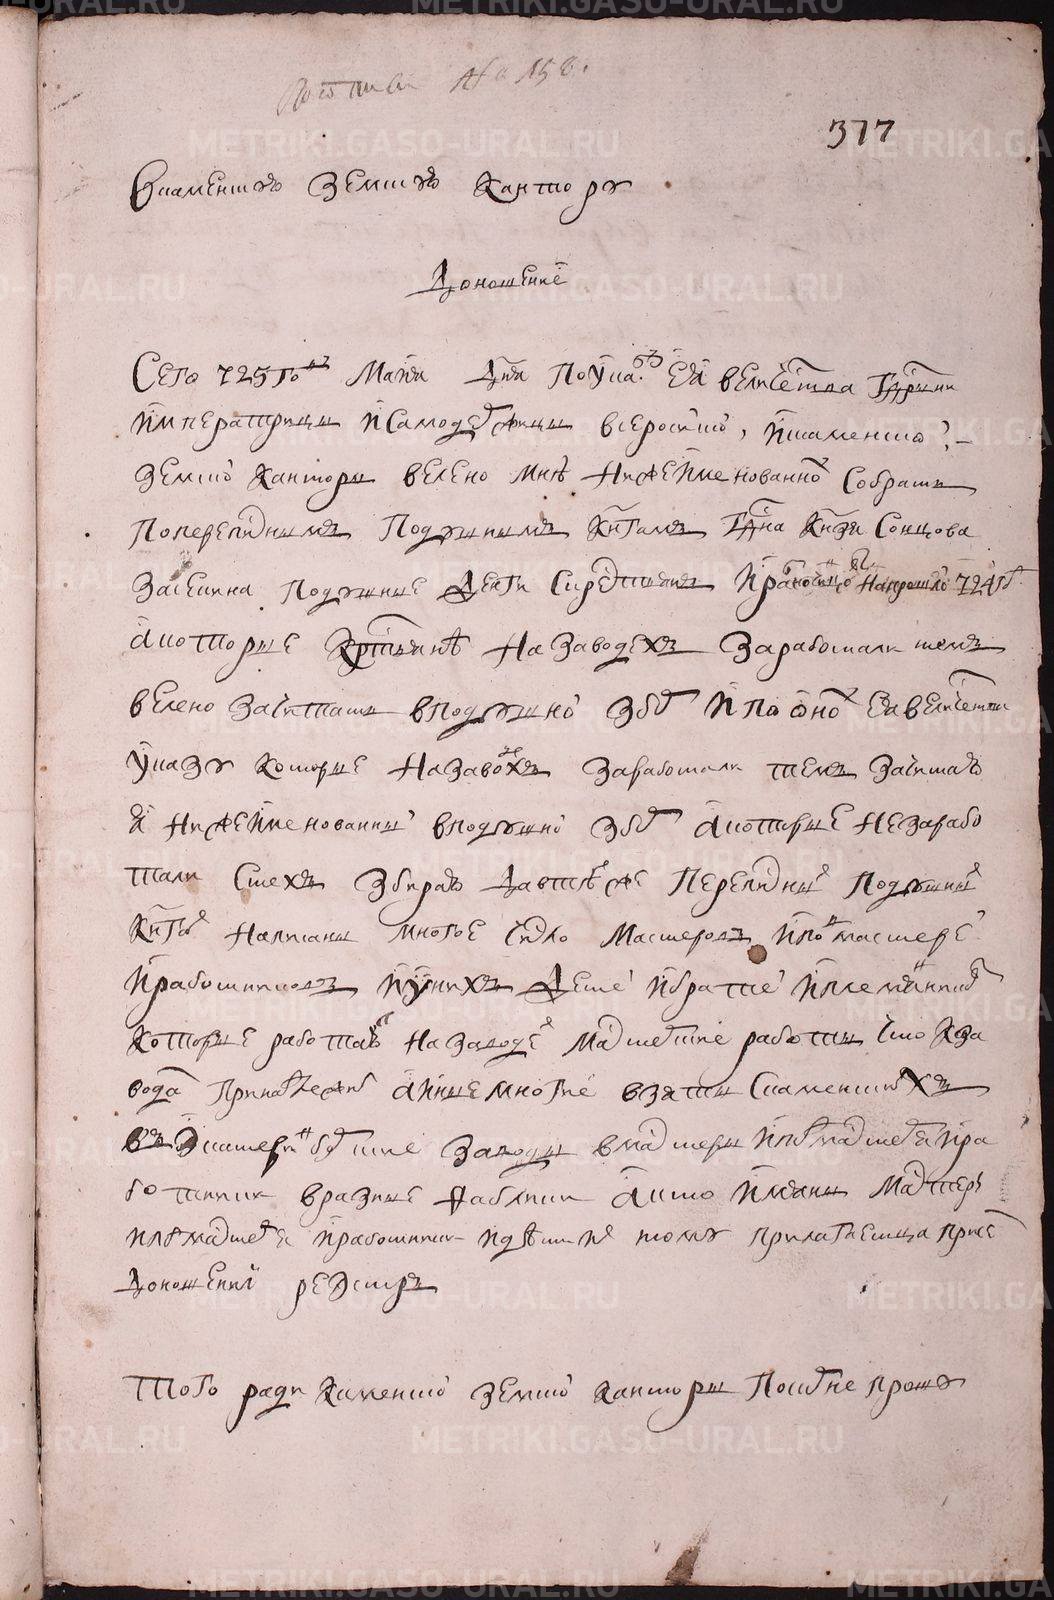 № 158
377
Вкаменскую Земскую Кантору
Доношение
Сего 725 году Маия дня По Указу Ея величества Гдрни
Императрицы И Самодержицы всеросиской, Искаменской
Земской Канторы велено мнѣ Нижеименованному Собрать
Поперепиднымъ Подушнымъ Книгамъ Гдна Кнзя Сонцова
Засекина Подушные Денги Скрестьянъ Напрошлой 724 год
Акоторые Крстьянѣ На Заводехъ Заработали темъ
велено Зачитать вподушной Збор И по оному Ея величества
Указу Которые На Заводехъ Заработали темъ Зачитаю
Я Нижеименованный вподушной Збор Акоторые Незарабо
тали Стехъ Збираю Даvтѣхже Переписных Подушных
Книгах Написаны многое число Мастеровъ Иподмастерев
Иработниковъ Иуних Детей Ибратей Иплемянников
Которые работаю На Заводе Мастерские работы что Кза
воду Принадлежит Аиные многие взяты Скаменских
въ Екатеринбурские Заводы вмастеры Иподмастерьи Ира
ботники вразные Фабрики Акто Имяны Мастеръ
Иподмастерья Иработники Идѣти Их тому прилагаетца присем
Доношении реэстръ
Того ради Каменской Земской канторы Покорне прошу
METRIKI.GASO-URAL.RU